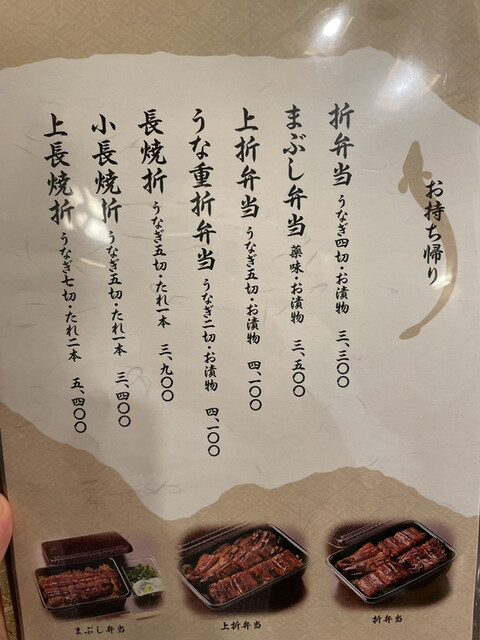 お持ち帰り
折弁当 うなぎ四切・お漬物 三、三〇〇
まぶし弁当 薬味・お漬物 三、五〇〇
上折弁当 うなぎ五切・お漬物 四、一〇〇
うな重折弁当 うなぎ二切・お漬物 四、一〇〇
長焼折 うなぎ五切・たれ一本 三、九〇〇
小長焼折 うなぎ五切・たれ一本 三、四〇〇
上長焼折 うなぎ七切・たれ二本 五、四〇〇
まぶし弁当
上折弁当
折弁当